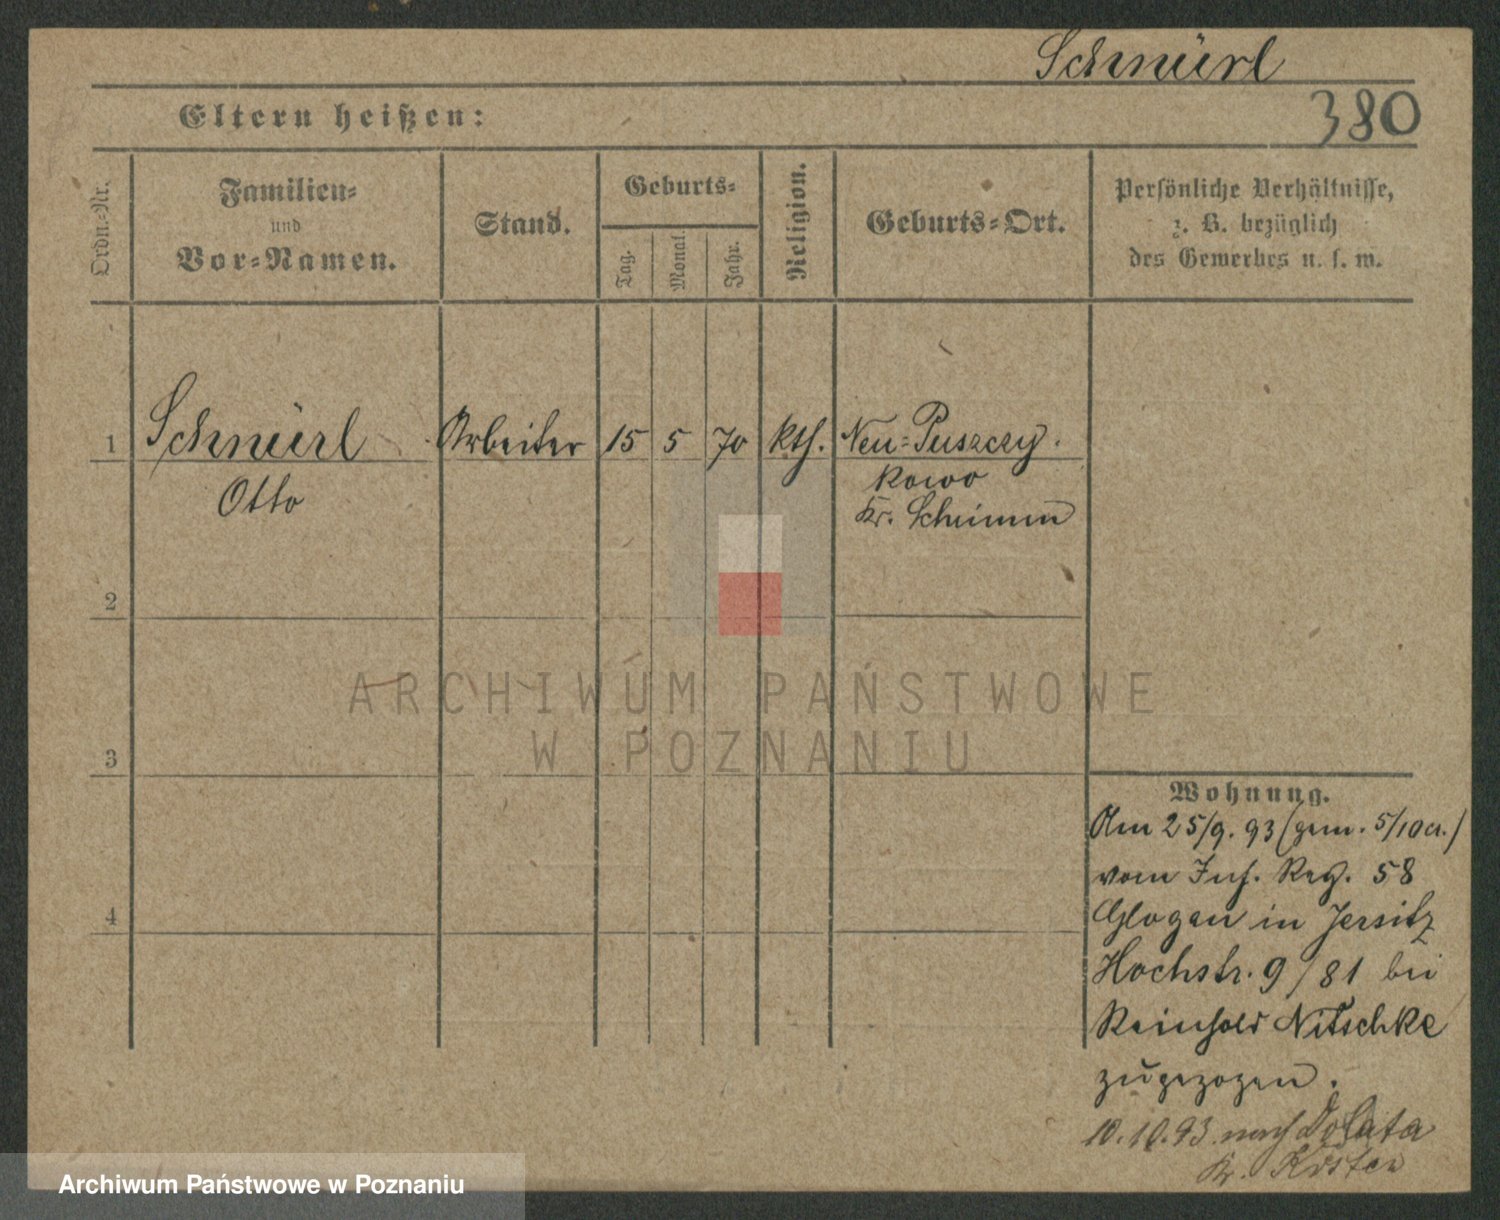 Schnürl
Eltern heißen:
380
Ordn.-Nr.
Familien-
und
Vor-Namen.
Stand.
Geburts-
Tag.
Monat.
Jahr.
Religion.
Geburts-Ort.
Persönliche Verhältnisse,
z. B. bezüglich
des Gewerbes u. s. w.
1 Schnürl Arbeiter 15 5 70 kth. Neu-Puszczy-
Otto kowo
Kr. Schrimm
2
3
4
Wohnung.
Am 25/9. 93 (gem. 5/10 cr.)
vom Inf. Reg. 58
Glogau in Jersitz
Hochstr. 9/81 bei
Reinhold Nitschke
zugezogen.
10.10.93 nach
Kr. Kosten
ARCHIWUM PAŃSTWOWE
W POZNANIU
Archiwum Państwowe w Poznaniu